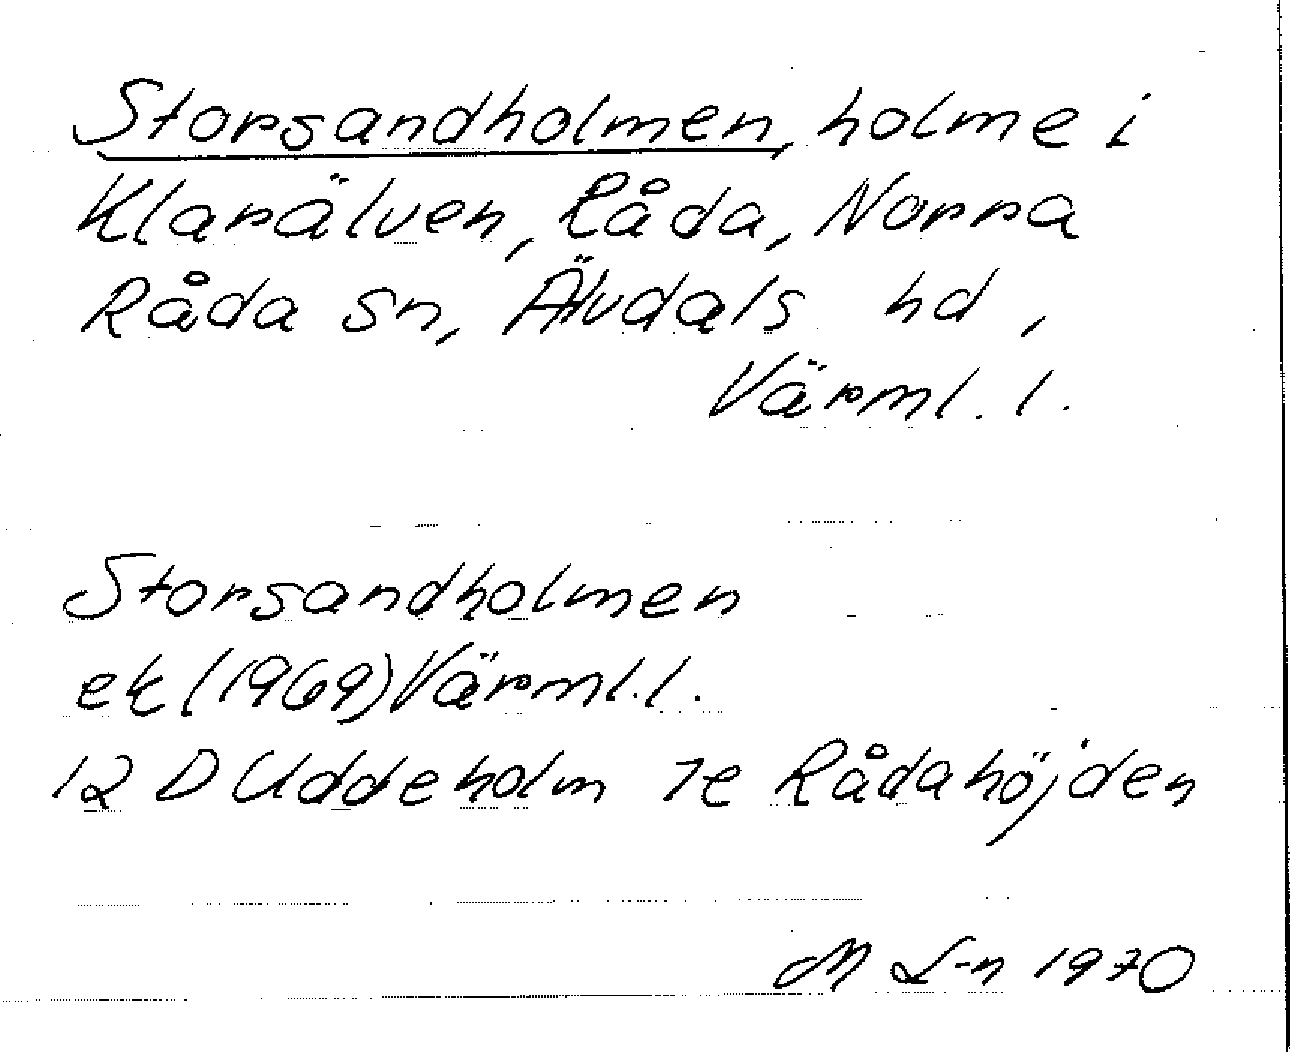 Storsandholmen, holme i
Klarälven, Råda, Norra
Råda sn, Älvdals hd,
Värml. l.
Storsandholmen
ek (1969) Värml. l.
12 D Uddeholm 7e Rådahöjden
M L-n 1970